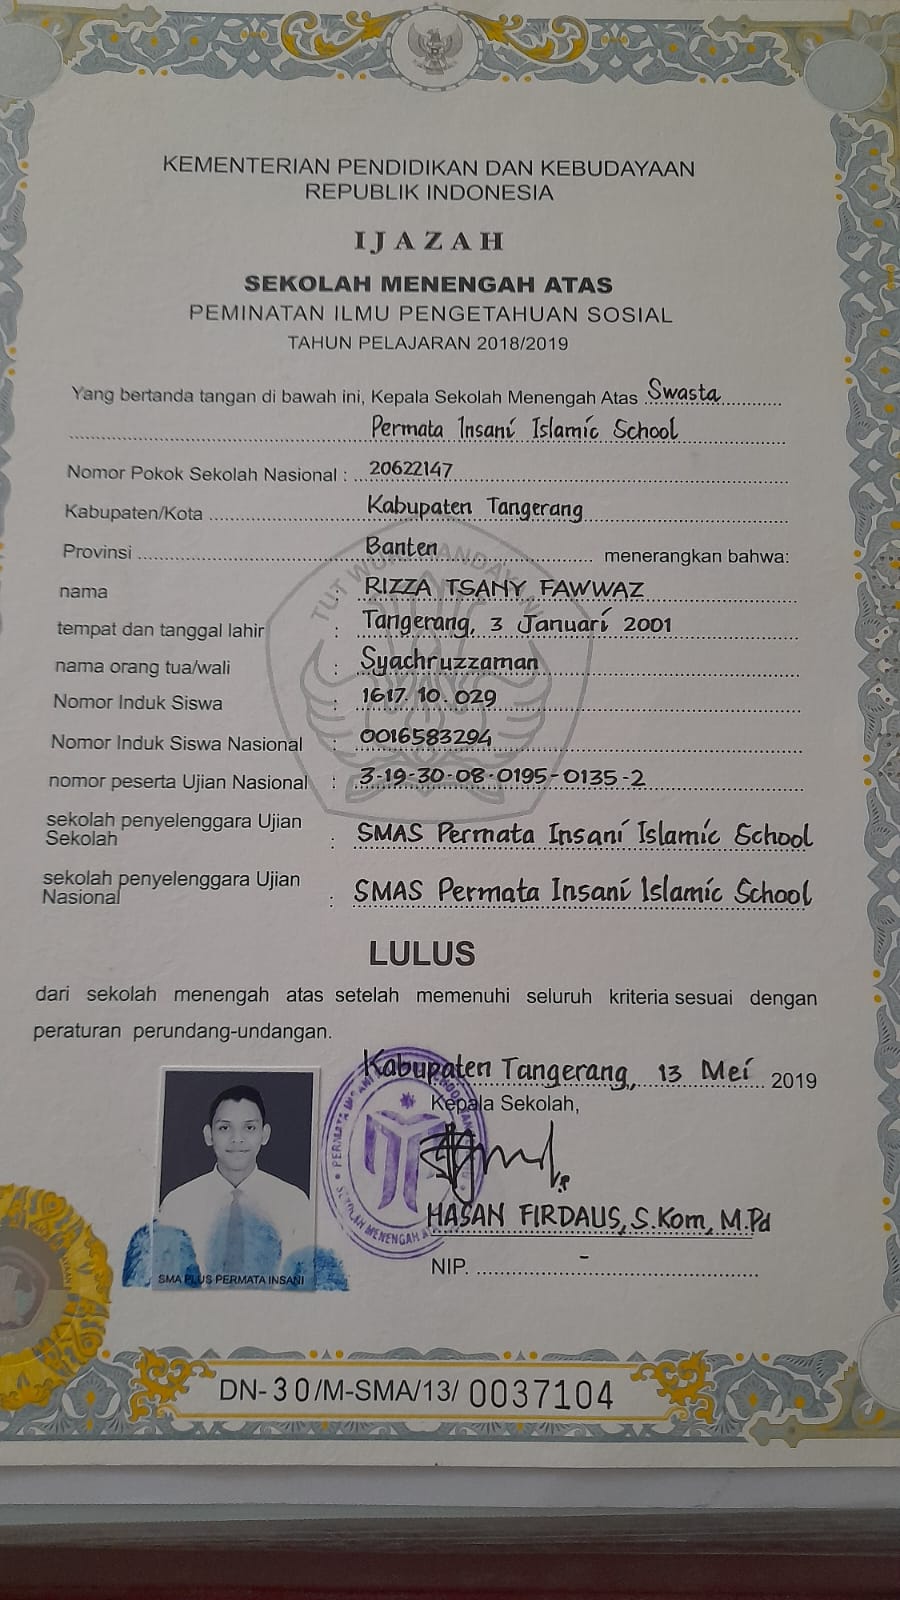 KEMENTERIAN PENDIDIKAN DAN KEBUDAYAAN
REPUBLIK INDONESIA
IJAZAH
SEKOLAH MENENGAH ATAS
PEMINATAN ILMU PENGETAHUAN SOSIAL
TAHUN PELAJARAN 2018/2019
Yang bertanda tangan di bawah ini, Kepala Sekolah Menengah Atas Swasta
Permata Insani Islamic School
Nomor Pokok Sekolah Nasional : 20622147
Kabupaten/Kota Kabupaten Tangerang
Provinsi Banten menerangkan bahwa:
nama : RIZZA TSANY FAWWAZ
tempat dan tanggal lahir : Tangerang, 3 Januari 2001
nama orang tua/wali : Syachruzzaman
Nomor Induk Siswa : 1617.10.029
Nomor Induk Siswa Nasional : 0016583294
nomor peserta Ujian Nasional : 3-19-30-08-0195-0135-2
sekolah penyelenggara Ujian
Sekolah : SMAS Permata Insani Islamic School
sekolah penyelenggara Ujian
Nasional : SMAS Permata Insani Islamic School
LULUS
dari sekolah menengah atas setelah memenuhi seluruh kriteria sesuai dengan
peraturan perundang-undangan.
Kabupaten Tangerang, 13 Mei 2019
Kepala Sekolah,
HASAN FIRDAUS, S.Kom, M.Pd
NIP. -
SMA PLUS PERMATA INSANI
DN-30/M-SMA/13/ 0037104